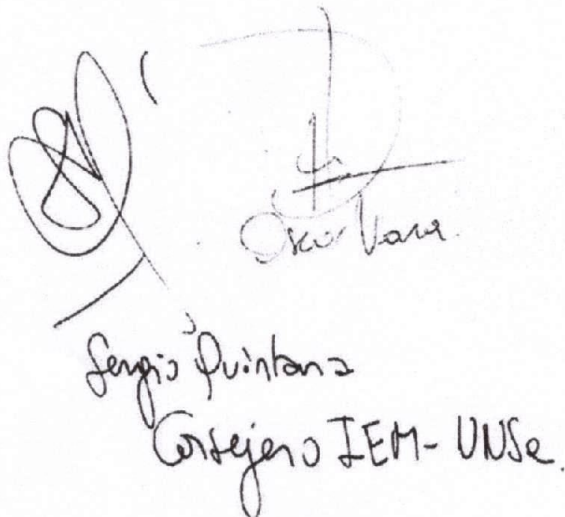 Oscar Vara.
Sergio Quintana
Consejero IEM-UNSe.